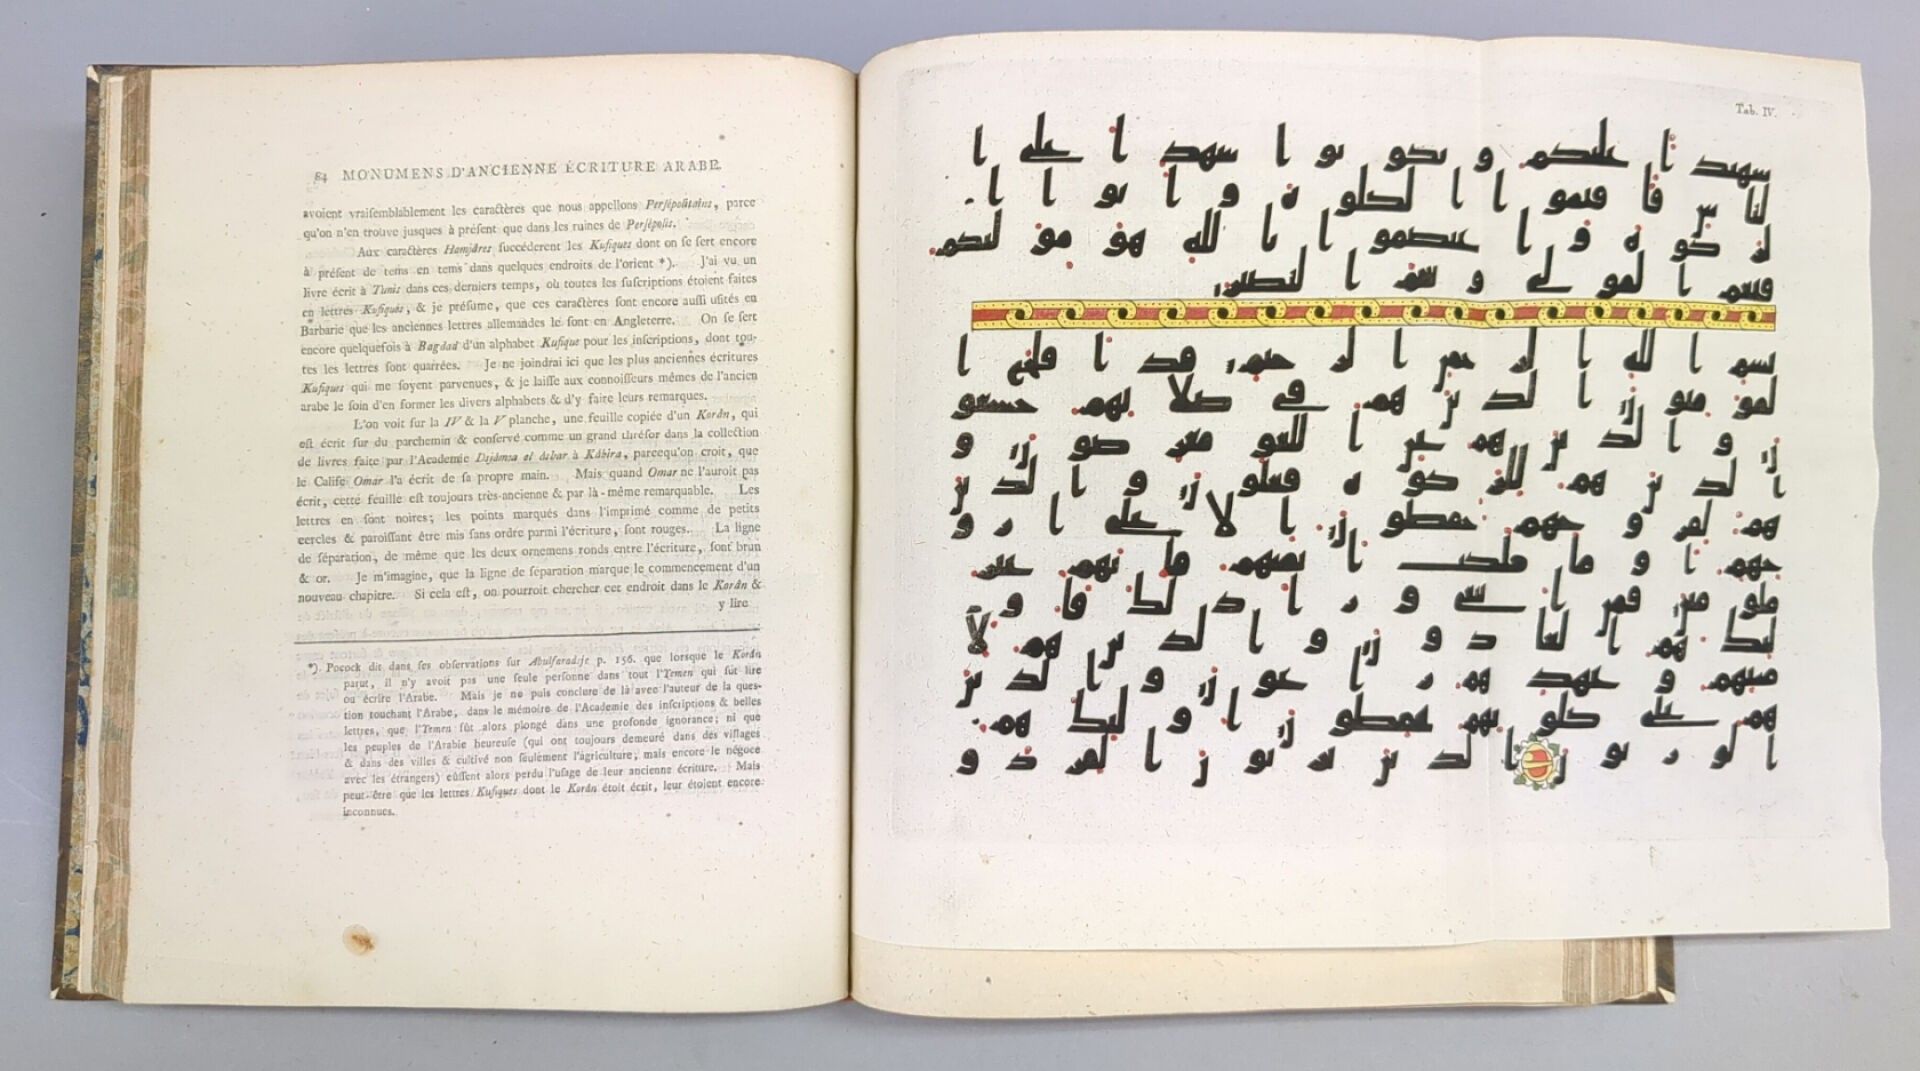 84 MONUMENS D'ANCIENNE ÉCRITURE ARABE.
avoient vraiſemblablement les caractères que nous appellons Perſépolitains, parce
qu'on n'en trouve jusques à préſent que dans les ruines de Perſépolis.
Aux caractères Hamjâres ſuccéderent les Kufiques dont on ſe ſert encore
à préſent de tems en tems dans quelques endroits de l'orient *). J'ai vu un
livre écrit à Tunis dans ces derniers temps, où toutes les ſuſcriptions étoient faites
en lettres Kufiqués, & je préſume, que ces caractères ſont encore auſſi uſités en
Barbarie que les anciennes lettres allemandes le ſont en Angleterre. On ſe ſert
encore quelquefois à Bagdad d'un alphabet Kufique pour les inſcriptions, dont tou-
tes les lettres ſont quarrées. Je ne joindrai ici que les plus anciennes écritures
Kufiques qui me ſoyent parvenues, & je laiſſe aux connoiſſeurs mêmes de l'ancien
arabe le ſoin d'en former les divers alphabets & d'y faire leurs remarques.
L'on voit ſur la IV & la V planche, une feuille copiée d'un Korân, qui
eſt écrit ſur du parchemin & conſervé comme un grand thréſor dans la collection
de livres faite par l'Academie Dsjâmea el ásbar à Kâhira, parcequ'on croit, que
le Calife Omar l'a écrit de ſa propre main. Mais quand Omar ne l'auroit pas
écrit, cette feuille eſt toujours très-ancienne & par là-même remarquable. Les
lettres en ſont noires; les points marqués dans l'imprimé comme de petits
cercles & paroiſſant être mis ſans ordre parmi l'écriture, ſont rouges. La ligne
de ſéparation, de même que les deux ornemens ronds entre l'écriture, ſont brun
& or. Je m'imagine, que la ligne de ſéparation marque le commencement d'un
nouveau chapitre. Si cela eſt, on pourroit chercher cet endroit dans le Korân &
y lire
*) Pocock dit dans ſes obſervations ſur Abulfaradsje p. 156. que lorsque le Korân
parut, il n'y avoit pas une ſeule perſonne dans tout l'Yemen qui ſût lire
ou écrire l'Arabe. Mais je ne puis conclure de là avec l'auteur de la ques-
tion touchant l'Arabe, dans le mémoire de l'Academie des inſcriptions & belles
lettres, que l'Yemen fût alors plongé dans une profonde ignorance; ni que
les peuples de l'Arabie heureuſe (qui ont toujours demeuré dans des villages
& dans des villes & cultivé non ſeulement l'agriculture, mais encore le négoce
avec les étrangers) eûſſent alors perdu l'uſage de leur ancienne écriture. Mais
peut-être que les lettres Kufiques dont le Korân étoit écrit, leur étoient encore
inconnues.
Tab. IV.
شهيدا عليكم و تكونوا شهدا على ا
لناس فاقيموا الصلوه و اتوا ا
لزكوه و اعتصموا بالله هو موليكم
فنعم المولى و نعم النصير
بسم الله الرحمن الرحيم قد افلح ا
لمومنون الذين هم في صلاتهم خشعو
ن و الذين هم عن اللغو معرضون و
ا لذين هم للزكوه فعلون و الذين
هم لفروجهم حفظون الا على ازو
جهم او ما ملكت ايمنهم فانهم غير
ملومين فمن ابتغى ورا ذلك فاو
لئك هم العادون و الذين هم لا
منتهم و عهدهم رعون و الذين
هم على صلوتهم يحفظون اولئك هم
الورثون الذين يرثون الفردو